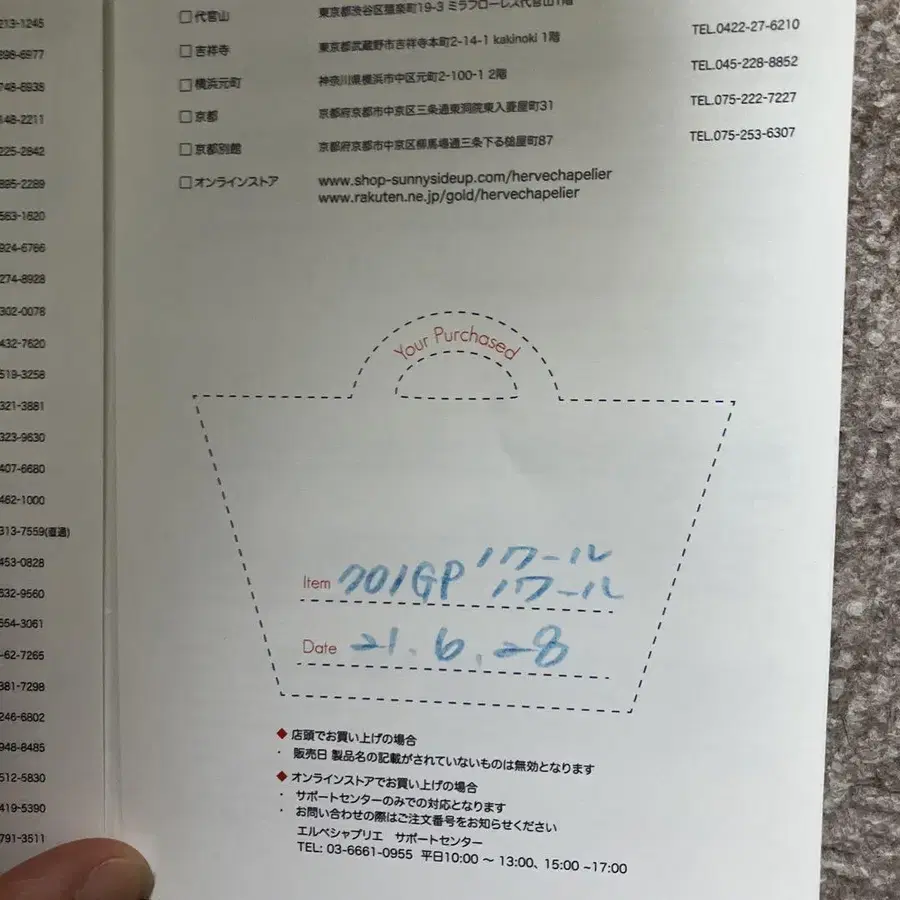 213-1245
896-6977
748-6935
148-2211
225-2842
895-2289
563-1620
924-6766
274-8928
302-0078
432-7620
519-3258
321-3881
323-9630
407-6680
462-1000
313-7559(直通)
453-0828
632-9560
554-3061
-62-7265
381-7298
246-6802
948-8485
512-5830
419-5390
791-3511
□ 代官山 東京都渋谷区猿楽町19-3 ミラフローレス代官山1階
□ 吉祥寺 東京都武蔵野市吉祥寺本町2-14-1 kakinoki 1階 TEL.0422-27-6210
□ 横浜元町 神奈川県横浜市中区元町2-100-1 2階 TEL.045-228-8852
□ 京都 京都府京都市中京区三条通東洞院東入菱屋町31 TEL.075-222-7227
□ 京都別館 京都府京都市中京区柳馬場通三条下る槌屋町87 TEL.075-253-6307
□ オンラインストア www.shop-sunnysideup.com/hervechapelier
www.rakuten.ne.jp/gold/hervechapelier
Your Purchased
ノワール
Item 701GP ノワール
Date 21.6.28
◆ 店頭でお買い上げの場合
・ 販売日 製品名の記載がされていないものは無効となります
◆ オンラインストアでお買い上げの場合
・ サポートセンターのみでの対応となります
・ お問い合わせの際はご注文番号をお知らせください
エルベシャプリエ サポートセンター
TEL: 03-6661-0955 平日10:00 ~ 13:00、15:00 ~17:00